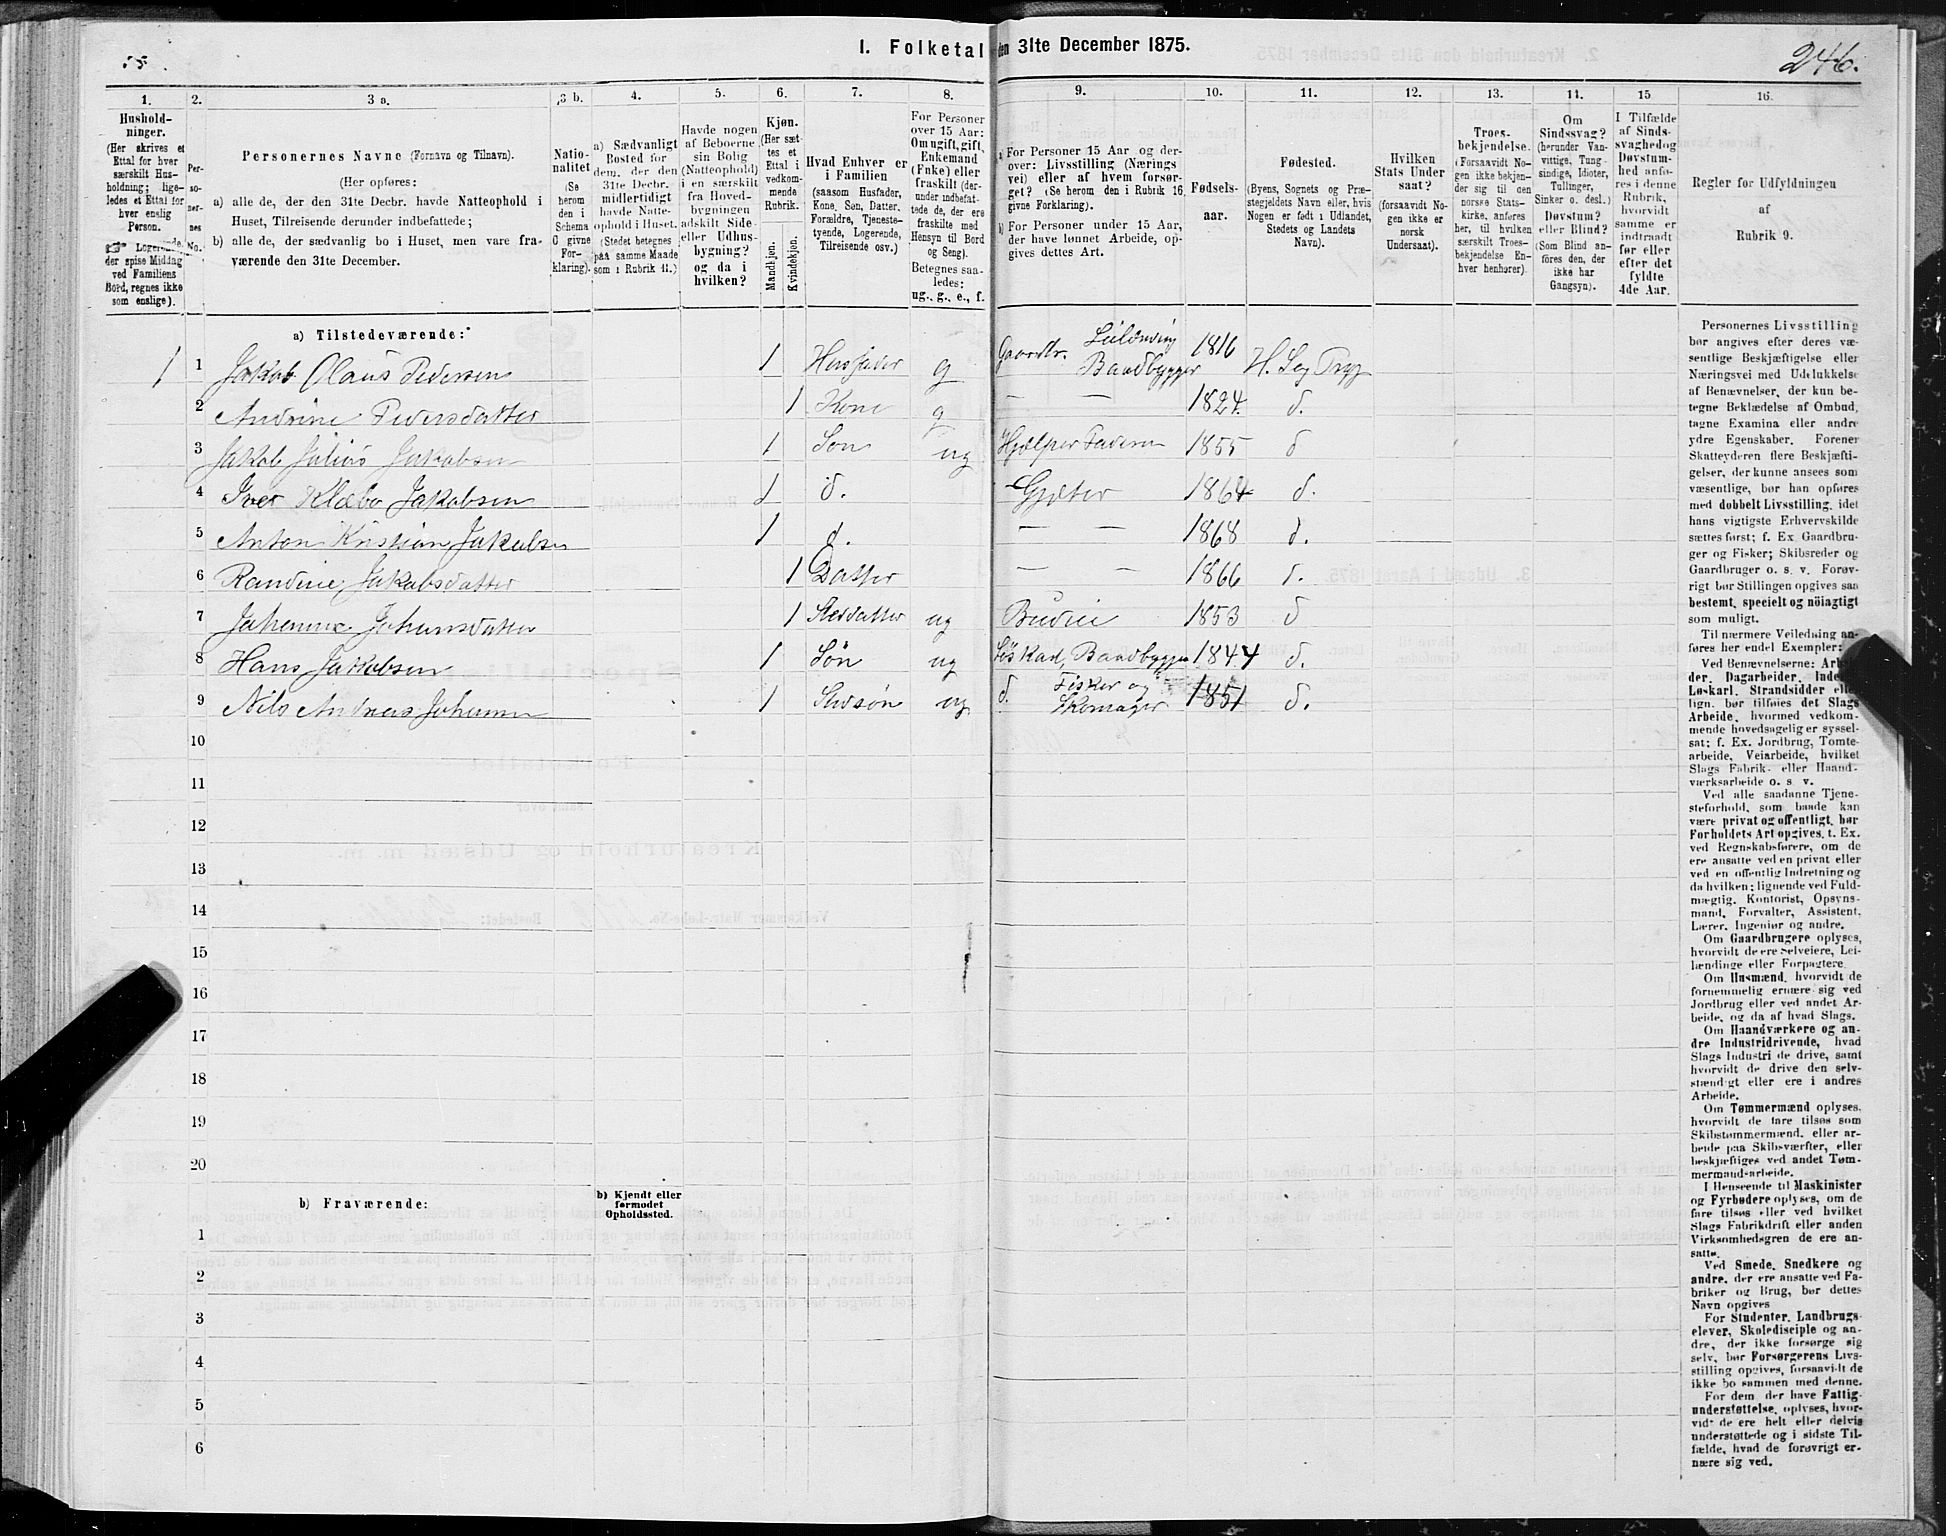 I. Folketal den 31te December 1875.
246.
1.
Hushold-
ninger.
(Her skrives et
Ettal for hver
særskilt Hus-
holdning; lige-
ledes et Ettal for
hver enslig
Person.
Logerende,
der spise Middag
ved Familiens
Bord, regnes ikke
som enslige).
2.
Per-
so-
ner-
nes
No.
3 a.
Personernes Navne (Fornavn og Tilnavn).
(Her opføres:
a) alle de, der den 31te Decbr. havde Natteophold i
Huset, Tilreisende derunder indbefattede;
b) alle de, der sædvanlig bo i Huset, men vare fra-
værende den 31te December.
3 b.
Natio-
nalitet
(Se
herom
den i
Schema
C givne
For-
klaring).
4.
a) Sædvanligt
Bosted for
dem, der den
31te Decbr.
midlertidigt
havde Natte-
ophold i Huset.
(Stedet betegnes
paa samme Maade
som i Rubrik 11.)
5.
Havde nogen
af Beboerne
sin Bolig
(Natteophold)
i en særskilt
fra Hoved-
bygningen
adskilt Side-
eller Udhus-
bygning?
og da i
hvilken?
6.
Kjøn.
(Her sæt-
tes et
Ettal i
vedkom-
mende
Rubrik.
Mandkjøn.
Kvindekjøn.
7.
Hvad Enhver er
i Familien
(saasom Husfader,
Kone, Søn, Datter.
Forældre, Tjeneste-
tyende, Logerende,
Tilreisende osv.)
8.
For Personer
over 15 Aar:
Om ugift, gift,
Enkemand
(Enke) eller
fraskilt (der-
under indbefat-
tede de, der ere
fraskilte med
Hensyn til Bord
og Seng).
Betegnes saa-
ledes:
ug., g., e., f.
9.
a) For Personer 15 Aar og der-
over: Livsstilling (Nærings
vei) eller af hvem forsør-
get? (Se herom den i Rubrik 16
givne Forklaring).
b) For Personer under 15 Aar,
der have lønnet Arbeide, op-
gives dettes Art.
10.
Fødsels-
aar.
11.
Fødested.
(Byens, Sognets og Præ-
stegjeldets Navn eller, hvis
Nogen er født i Udlandet,
Stedets og Landets
Navn).
12.
Hvilken
Stats Under
saat?
(forsaavidt No-
gen ikke er
norsk
Undersaat).
13.
Troes-
bekjendelse.
(Forsaavidt No-
gen ikke bekjen-
der sig til den
norske Stats-
kirke, anføres
her, til hvilken
særskilt Troes-
bekjendelse En-
hver henhører).
14.
Om
Sindssvag?
(herunder Van-
vittige, Tung-
sindige, Idioter,
Tullinger,
Sinker o. desl.)
Døvstum?
eller Blind?
(Som Blind an-
føres den, der
ikke har
Gangsyn).
15
I Tilfælde
af Sinds-
svaghed og
Døvstum-
hed anfø-
res i denne
Rubrik,
hvorvidt
samme er
indtraadt
før eller
efter det
fyldte
4de Aar.
16.
Regler for Udfyldningen
af
Rubrik 9.
a) Tilstedeværende:
1 1 Jakob Olaus Pedersen 1 Husfader g Gaardbr. Leilænding Baadbygger 1816
2 Andrine Pedersdatter 1 Kone g — — 1824 d.
3 Jakob Julius Jakobsen 1 Søn ug Hjælper Faderen 1855 d
4 Iver Klæbo Jakobsen 1 d. Gjeter 1864 d.
5 Anton Kristian Jakobsen 1 d. — — 1868 d.
6 Randine Jakobsdatter 1 Datter — — 1866 d.
7 Johanna Johansdatter 1 Steddatter ug Budeie 1853 d
8 Hans Jakobsen 1 Søn ug Løskar, Baadbygger 1844 d.
9 Nils Andreas Johansen 1 Stedsøn ug d. Fisker og Skomager 1851 d.
10
11
12
13
14
15
16
17
18
19
20
b) Fraværende:
b) Kjendt eller
formodet
Opholdssted.
1
2
3
4
5
6
Personernes Livsstilling
bør angives efter deres væ-
sentlige Beskjæftigelse eller
Næringsvei med Udelukkelse
af Benævnelser, der kun be-
tegne Beklædelse af Ombud,
tagne Examina eller andre
ydre Egenskaber. Forener
Skatteyderen flere Beskjæfti-
gelser, der kunne ansees som
væsentlige, bør han opføres
med dobbelt Livsstilling, idet
hans vigtigste Erhvervskilde
sættes først; f. Ex. Gaardbru-
ger og Fisker; Skibsreder og
Gaardbruger o. s. v. Forøv-
rigt bør Stillingen opgives saa
bestemt, specielt og nöiagtigt
som muligt.
Til nærmere Veiledning an-
føres her endel Exempler:
Ved Benævnelserne: Arbei-
der, Dagarbeider, Inder-
Løskarl, Strandsidder eller
lign. bør tilføies det Slags
Arbeide, hvormed vedkom-
mende hovedsagelig er syssel-
sat; f. Ex. Jordbrug, Tomte-
arbeide, Veiarbeide, hvilket
Slags Fabrik- eller Haand-
værksarbeide o. s. v.
Ved alle saadanne Tjene-
steforhold, som baade kan
være privat og offentligt, bør
Forholdets Art opgives, t. Ex.
ved Regnskabsførere, om de
ere ansatte ved en privat eller
ved en offentlig Indretning og
da hvilken; lignende ved Fuld-
mægtig, Kontorist, Opsyns-
mand, Forvalter, Assistent,
Lærer, Ingeniør og andre.
Om Gaardbrugere oplyses,
hvorvidt de ere Selveiere, Lei-
lændinge eller Forpagtere.
Om Husmænd, hvorvidt de
fornemmelig ernære sig ved
Jordbrug eller ved andet Ar-
beide, og da af hvad Slags.
Om Haandværkere og an-
dre Industridrivende, hvad
Slags Industri de drive, samt
hvorvidt de drive den selv-
stændigt eller ere i andres
Arbeide.
Om Tømmermænd oplyses,
hvorvidt de fare tilsøs som
Skibstømmermænd, eller ar-
beide paa Skibsværfter, eller
beskjæftiges ved andet Tøm-
mermandsarbeide.
I Henseende til Maskinister
og Fyrbødere oplyses, om de
fare tilsøs eller ved hvilket
Slags Fabrikdrift eller anden
Virksomhedsgren de ere an-
satte.
Ved Smede, Snedkere og
andre, der ere ansatte ved Fa-
briker og Brug, bør dettes
Navn opgives
For Studenter, Landbrugs-
elever, Skoledisciple og an-
dre, der ikke forsørge sig
selv, bør Forsørgerens Livs-
stilling opgives, forsaavidt de
ikke bo sammen med denne.
For dem, der have Fattig-
understøttelse, oplyses, hvor-
vidt de ere helt eller delvis
understøttede og i sidste Til-
fælde, hvad de forøvrigt er-
nære sig ved.